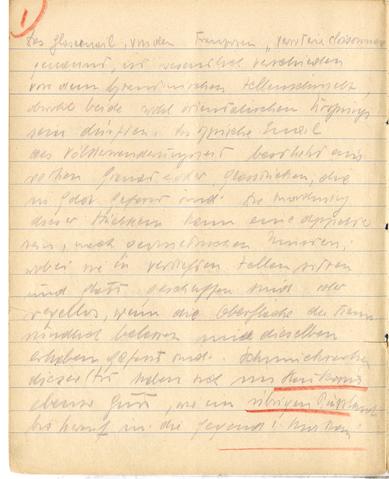 1
Das Glasemail, von den Franzosen "verroterie cloisonnée"
genannt, ist wesentlich verschieden
von dem byzantinischen Zellenschmelz,
obwohl beide wohl orientalischen Ursprungs
sein dürften. Das typische Email
der Völkerwanderungszeit besteht aus
rohen Granat oder Glasstücken, die
in Gold gefasst sind. Die
dieser Stückchen kann eine doppelte
sein, nach
wobei sie in vertieften Zellen sitzen
und glatt geschliffen sind oder
wenn die Oberfläche der
belassen und dieselben
erhaben gefasst sind. Schmucksachen
dieser Art haben sich im Kaukasus
ebenso gut, wie im übrigen Russland
bis herauf in die Gegend v.